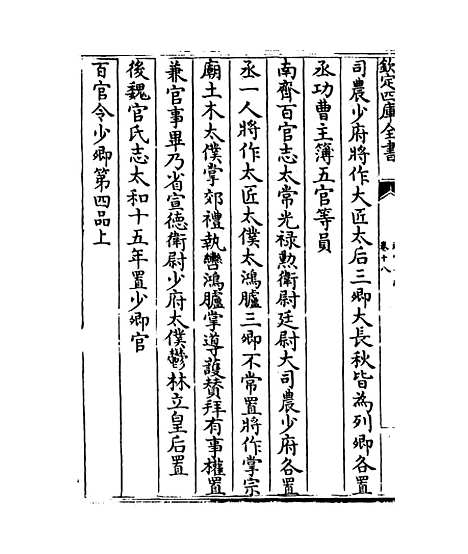 欽定四庫全書
卷十八
司農少府將作大匠太后三卿大長秋皆為列卿各置
丞功曹主簿五官等員
南齊百官志太常光禄勲衛尉廷尉大司農少府各置
丞一人將作太匠太僕太鴻臚三卿不常置將作掌宗
廟土木太僕掌郊禮執轡鴻臚掌導護賛拜有事權置
兼官事畢乃省宣徳衛尉少府太僕鬱林立皇后置
後魏官氏志太和十五年置少卿官
百官令少卿第四品上